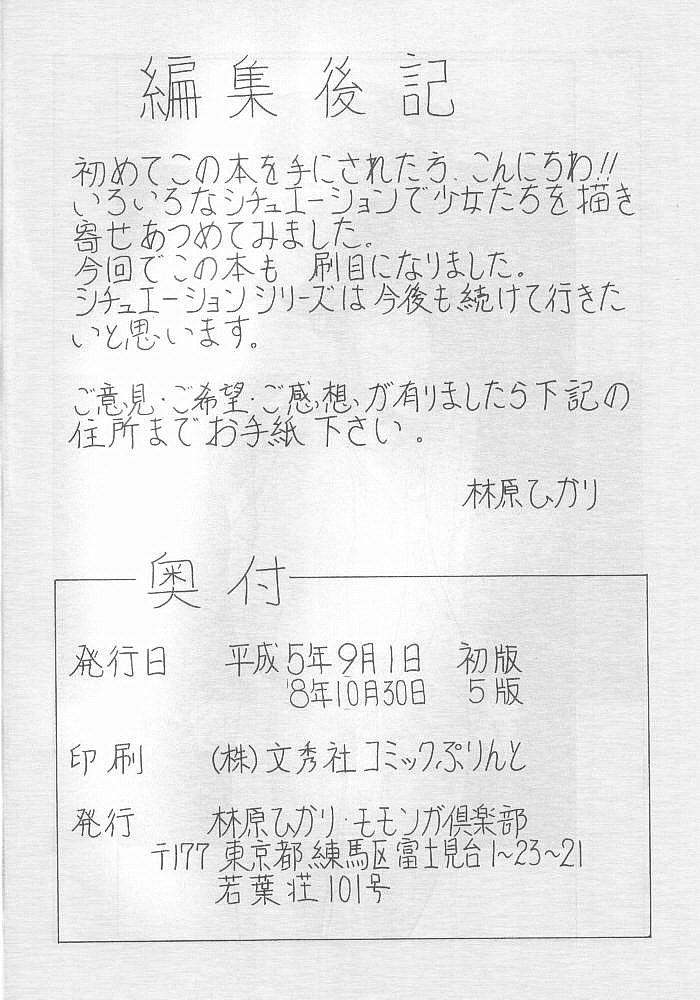 編集後記
初めてこの本を手にされた方、こんにちわ!!
いろいろなシチュエーションで少女たちを描き
寄せあつめてみました。
今回でこの本も　刷目になりました。
シチュエーションシリーズは今後も続けて行きた
いと思います。
ご意見・ご希望・ご感想、が有りましたら下記の
住所までお手紙下さい。
林原ひかり
奥付
発行日　平成5年9月1日　初版
'8年10月30日　5版
印刷　(株)文秀社コミックぷりんと
発行　林原ひかり・モモンガ倶楽部
〒177 東京都練馬区富士見台1~23~21
若葉荘101号